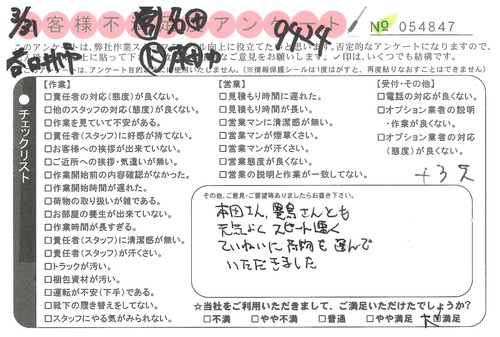 お客様不満足度アンケート
№ 054847
9424
このアンケートは、弊社作業スタッフの
向上に役立てたいと思います。否定的なアンケートになりますので、
ご意見をお願いします。✓印は、いくつでも結構です。
アンケート目的以外には使用いたしません。(※情報保護シールは1度はがすと、再度貼りなおすことはできません)
チェックリスト
【作業】
□責任者の対応(態度)が良くない。
□他のスタッフの対応(態度)が良くない。
□作業を見ていて不安がある。
□責任者(スタッフ)に好感が持てない。
□お客様への挨拶が出来ていない。
□ご近所への挨拶・気遣いが無い。
□作業開始前の内容確認がなかった。
□作業開始時間が遅れた。
□荷物の取り扱いが雑である。
□お部屋の養生が出来ていない。
□作業時間が長すぎる。
□責任者(スタッフ)に清潔感が無い。
□責任者(スタッフ)が汗くさい。
□トラックが汚い。
□梱包資材が汚い。
□運転が不安(下手)である。
□靴下の履き替えをしてない。
□スタッフにやる気がみられない。
【営業】
□見積もり時間に遅れた。
□見積もり時間が長い。
□営業マンに清潔感が無い。
□営業マンが煙草くさい。
□営業マンが汗くさい。
□営業態度が良くない。
□営業の説明と作業が一致してない。
【受付・その他】
□電話の対応が良くない。
□オプション業者の説明
・作業が良くない。
□オプション業者の対応
(態度)が良くない。
その他、ご意見・ご要望等ありましたらお書き下さい。
本田さん、豊島さんとも
元気よく スピード速く
ていねいに 荷物を運んで
いただきました
☆当社をご利用いただきまして、ご満足いただけたでしょうか?
□不満 □やや不満 □普通 □やや満足 □大満足